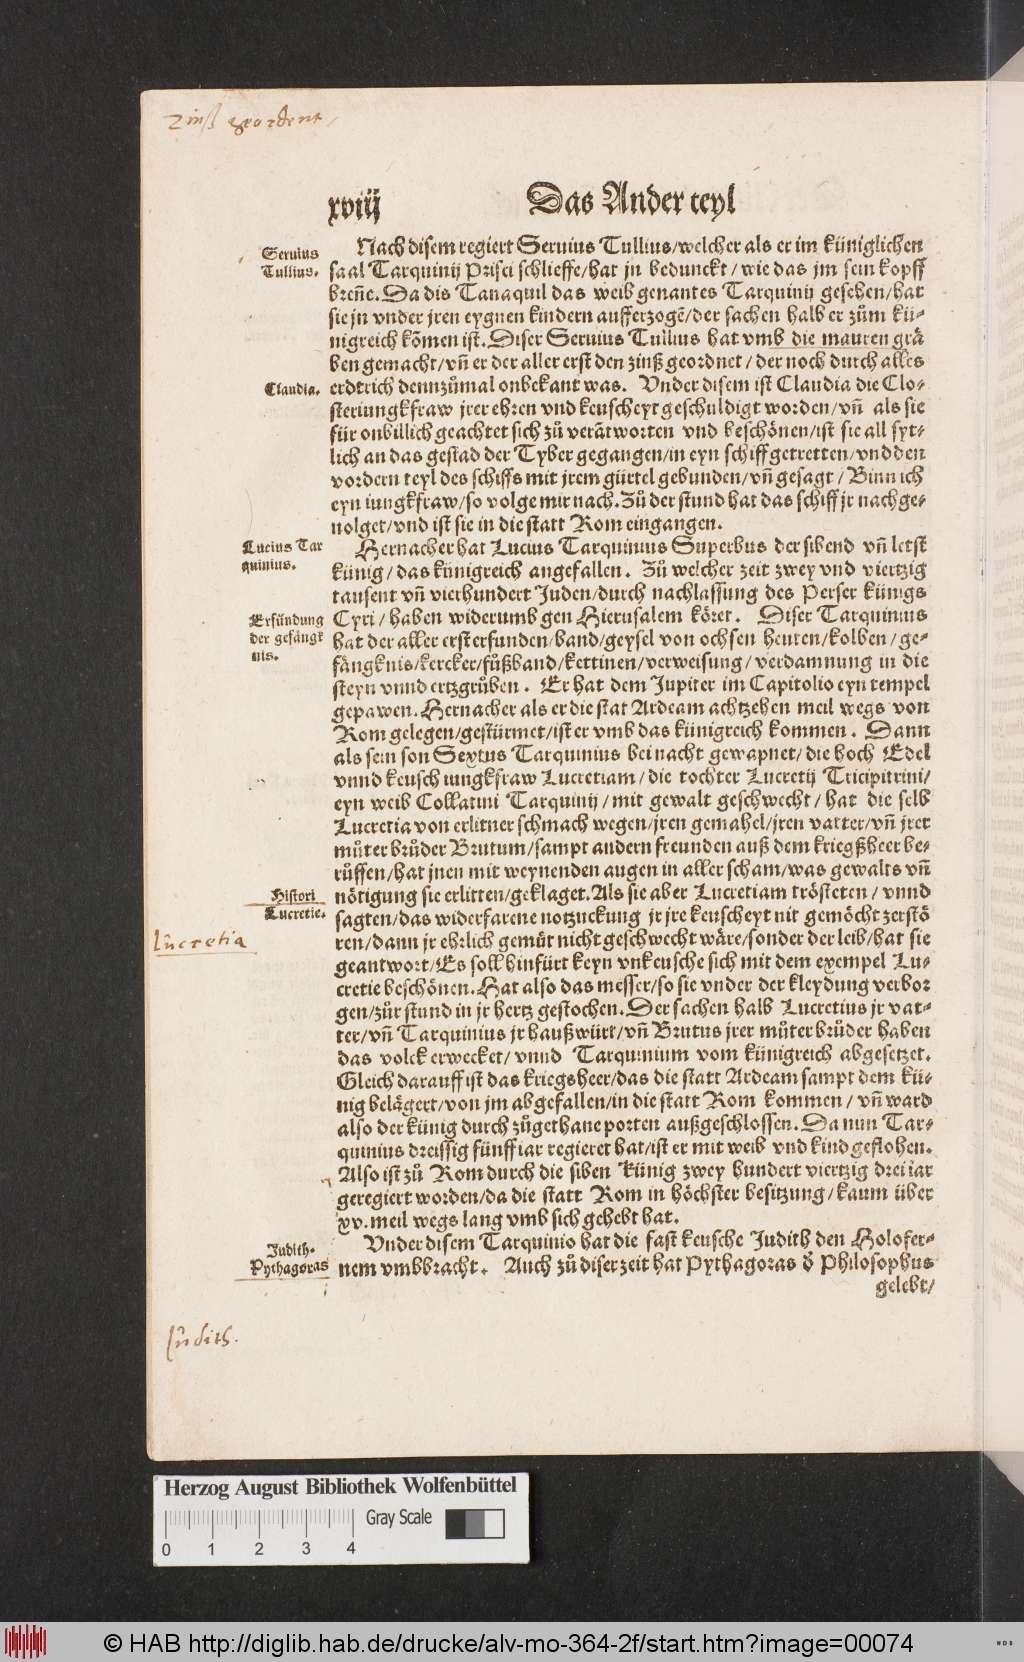 Zinß geordent
xviij
Das Ander teyl
Seruius
Tullius.
Nach disem regiert Seruius Tullius/welcher als er im küniglichen
saal Tarquinij Prisci schlieffe/hat jn bedunckt/wie das jm sein kopff
breñe. Da dis Tanaquil das weib genantes Tarquinij gesehen/hat
sie jn vnder jren eygnen kindern aufferzogē/der sachen halb er zům kü-
nigreich kōmen ist. Diser Seruius Tullius hat vmb die mauren grä
ben gemacht/vñ er der aller erst den zinß geordnet/der noch durch alles
Claudia.
erdtrich dennzůmal onbekant was. Vnder disem ist Claudia die Clo-
steriungkfraw jrer ehren vnd keuscheyt geschuldigt worden/vñ als sie
für onbillich geachtet sich zů verātworten vnd beschönen/ist sie all syt-
lich an das gestad der Tyber gegangen/in eyn schiff getretten/vnd den
vordern teyl des schiffs mit jrem gürtel gebunden/vñ gesagt/Binn ich
eyn iungkfraw/so volge mir nach. Zů der stund hat das schiff jr nachge-
uolget/vnd ist sie in die statt Rom eingangen.
Lucius Tar
quinius.
Hernacher hat Lucius Tarquinius Superbus der sibend vñ letst
künig/das künigreich angefallen. Zů welcher zeit zwey vnd viertzig
tausent vñ vierhundert Juden/durch nachlassung des Perser künigs
Erfindung
der gefängk
nis.
Cyri/haben widerumb gen Hierusalem köret. Diser Tarquinius
hat der aller erst erfunden/band/geysel von ochsen heuten/kolben/ge-
fängknis/kercker/fůßband/kettinen/verweisung/verdamnung in die
steyn vnnd ertzgrůben. Er hat dem Jupiter im Capitolio eyn tempel
gepawen. Hernacher als er die stat Ardeam achtzehen meil wegs von
Rom gelegen/gestürmet/ist er vmb das künigreich kommen. Dann
als sein son Sextus Tarquinius bei nacht gewapnet/die hoch Edel
vnnd keusch iungkfraw Lucretiam/die tochter Lucretij Tricipitrini/
eyn weib Collatini Tarquinij/mit gewalt geschwecht/hat die selb
Lucretia von erlitner schmach wegen/jren gemahel/jren vatter/vñ jrer
můter brůder Brutum/sampt andern freunden auß dem kriegßheer be-
růffen/hat jnen mit weynenden augen in aller scham/was gewalts vñ
Histori
Lucretie.
nötigung sie erlitten/geklaget. Als sie aber Lucretiam trösteten/vnnd
sagten/das widerfarene notzuckung jr jre keuscheyt nit gemöcht zerstö
Lucretia
ren/dann jr ehrlich gemüt nicht geschwecht wäre/sonder der leib/hat sie
geantwort/Es soll hinfürt keyn vnkeusche sich mit dem exempel Lu-
cretie beschönen. Hat also das messer/so sie vnder der kleydung verbor
gen/zůr stund in jr hertz gestochen. Der sachen halb Lucretius jr vat-
ter/vñ Tarquinius jr haußwürt/vñ Brutus jrer můter brůder haben
das volck erwecket/vnnd Tarquinium vom künigreich abgesetzet.
Gleich darauff ist das kriegsheer/das die statt Ardeam sampt dem kü-
nig belägert/von jm abgefallen/in die statt Rom kommen/vñ ward
also der künig durch zůgethane porten außgeschlossen. Da nun Tar-
quinius dreissig fünff iar regieret hat/ist er mit weib vnd kind geflohen.
Also ist zů Rom durch die siben künig zwey hundert viertzig drei iar
geregiert worden/da die statt Rom in höchster besitzung/kaum über
xv. meil wegs lang vmb sich gehebt hat.
Judith.
Pythagoras
Vnder disem Tarquinio hat die fast keusche Judith den Holofer-
nem vmbbracht. Auch zů diser zeit hat Pythagoras d̓ Philosophus
gelebt/
Judith.
Herzog August Bibliothek Wolfenbüttel
Gray Scale
0 1 2 3 4
© HAB http://diglib.hab.de/drucke/alv-mo-364-2f/start.htm?image=00074